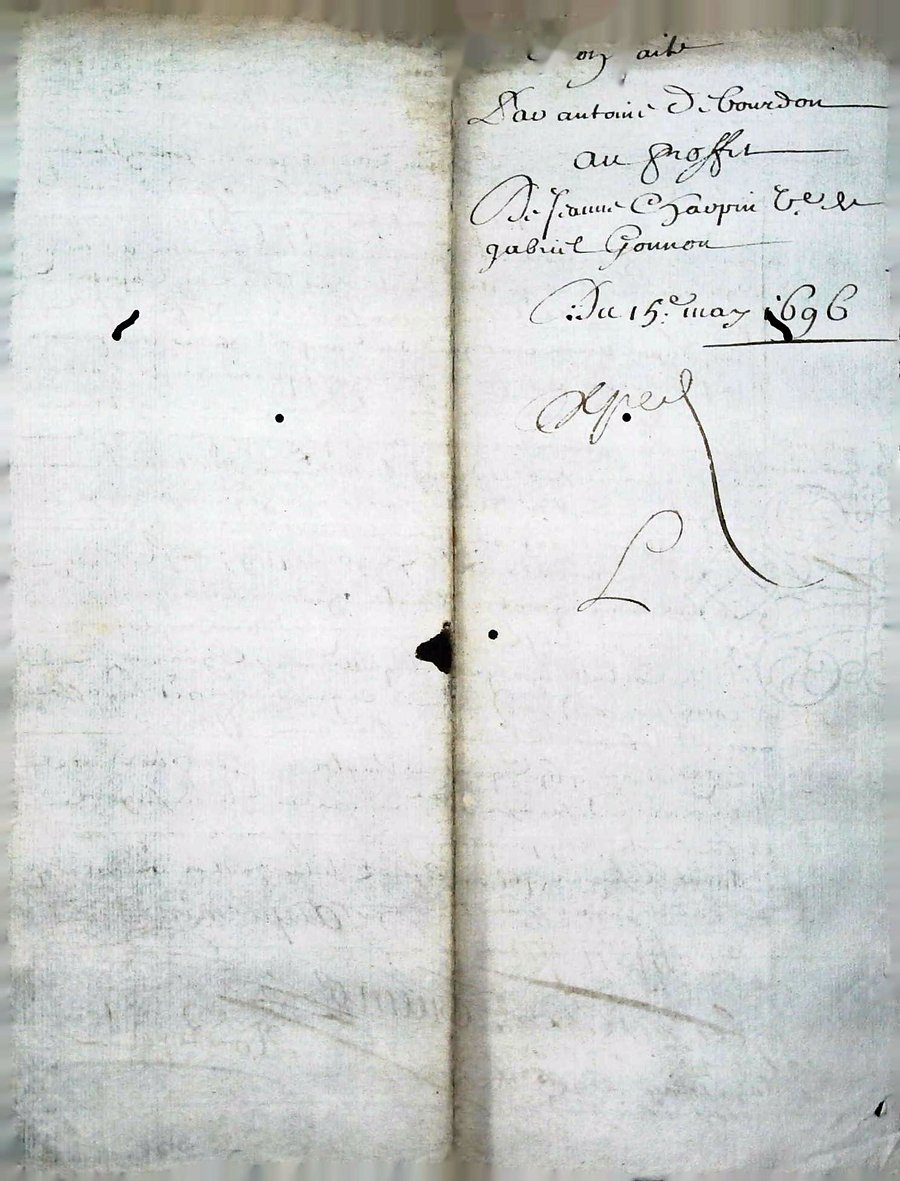 Par antoine Debourdon
au proffit
De Jeanne Chaopin Ve de
gabriel Gonnon
Du 15e may 1696
Exped
L